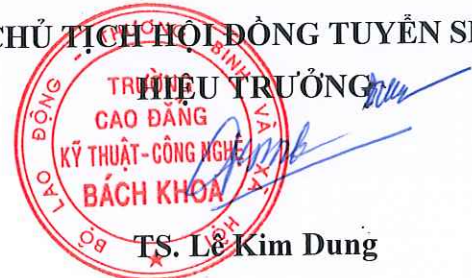 CHỦ TỊCH HỘI ĐỒNG TUYỂN S
HIỆU TRƯỞNG
BỘ LAO ĐỘNG - THƯƠNG BINH VÀ XÃ HỘI
TRƯỜNG
CAO ĐẲNG
KỸ THUẬT-CÔNG NGHỆ
BÁCH KHOA
TS. Lê Kim Dung